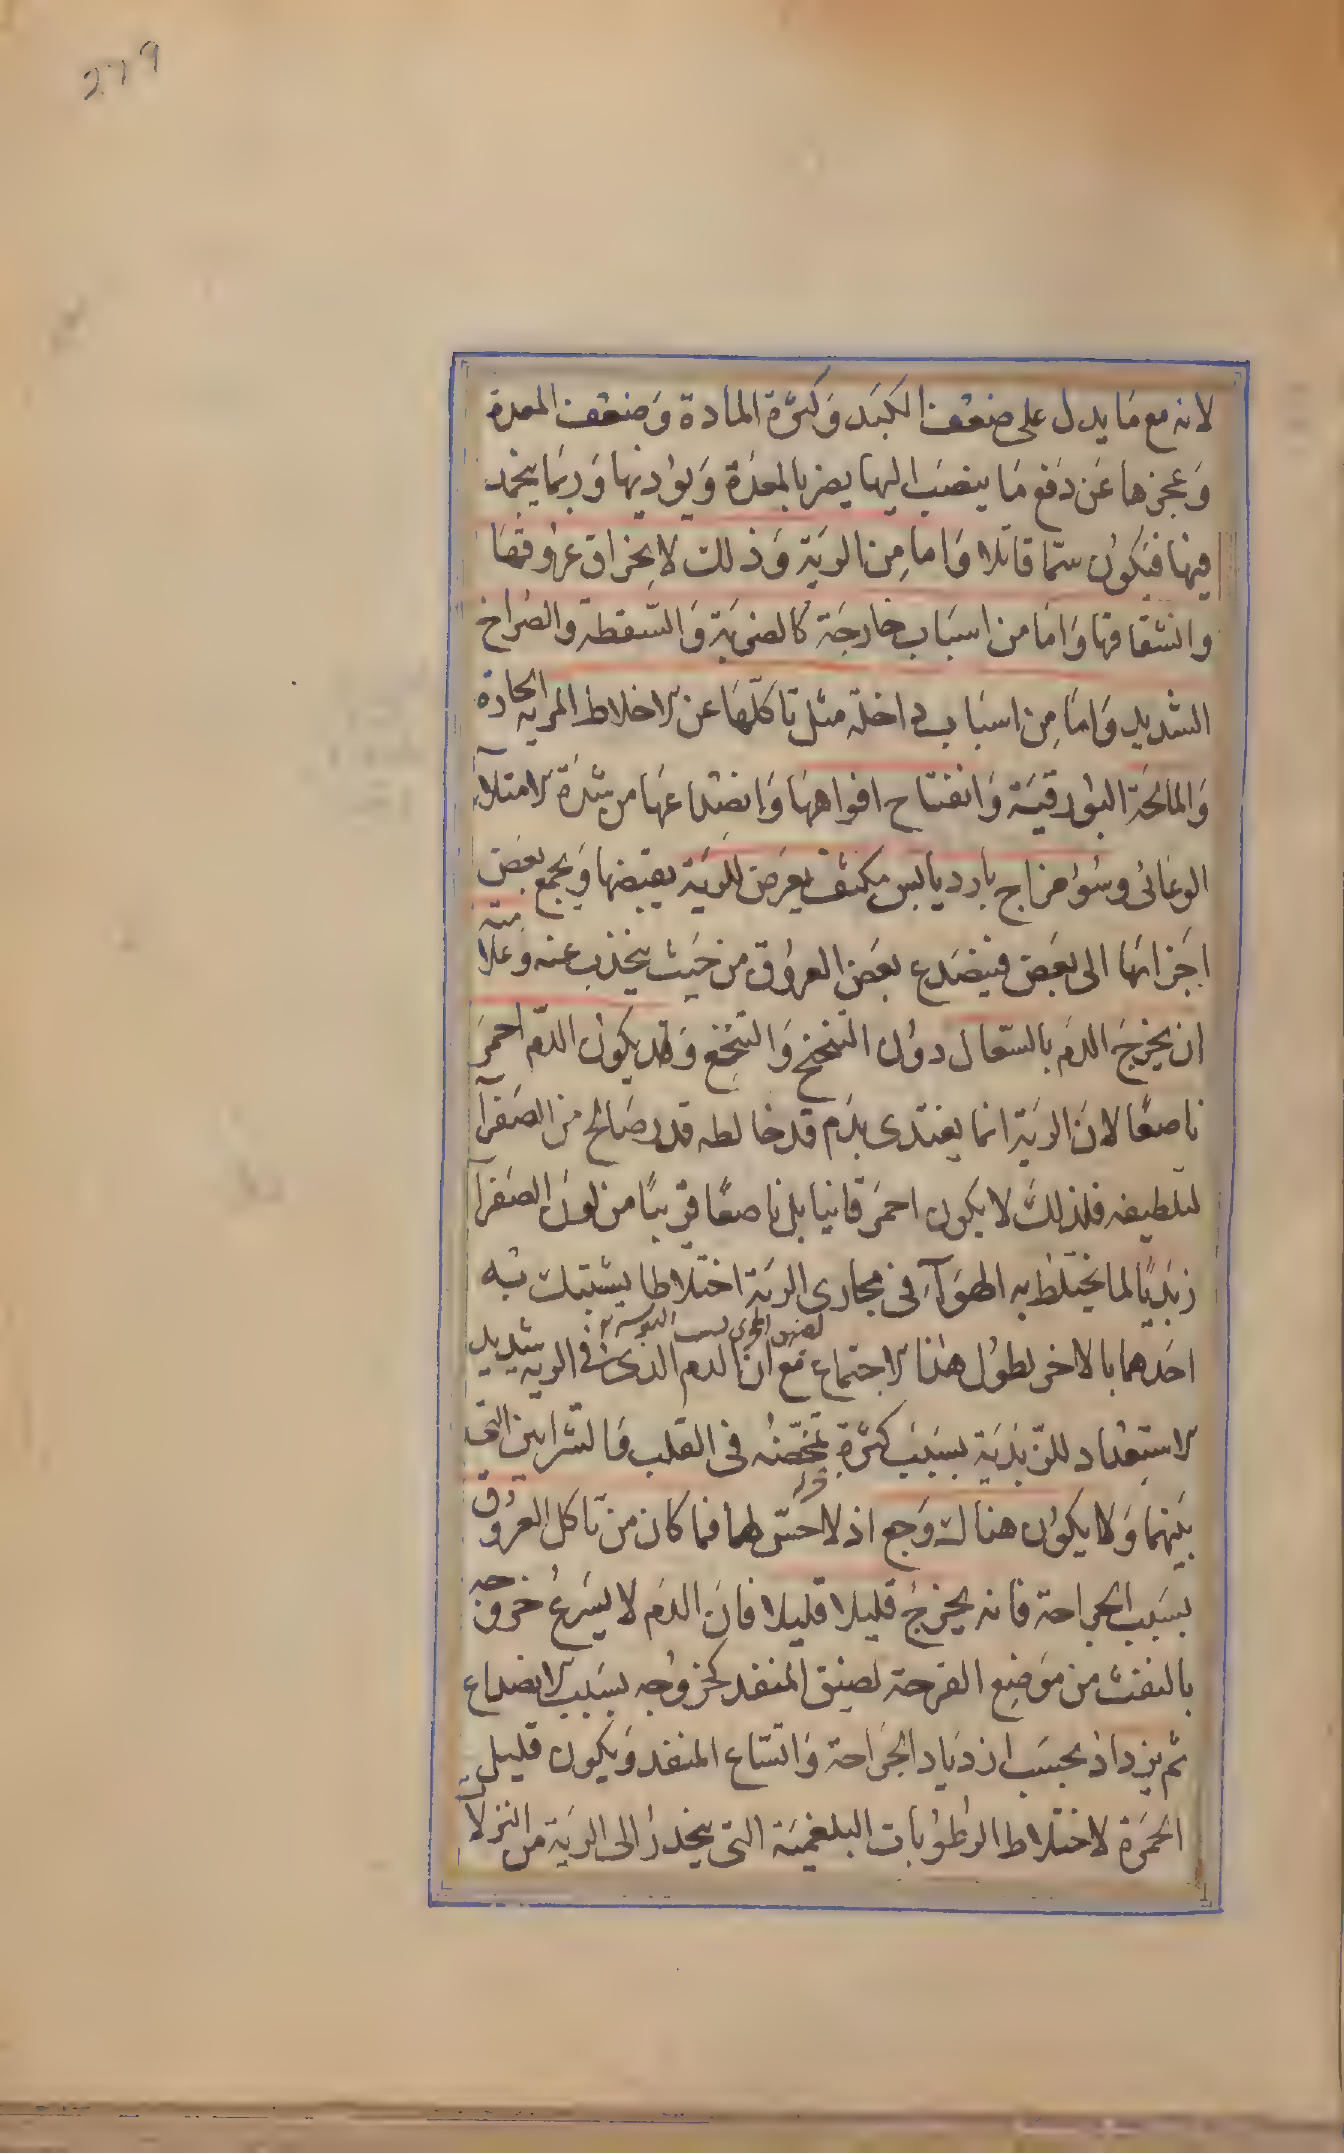 279
لانه مع ما يدل على ضعف الكبد وكثرة المادة وضعف المعدة
وعجزها عن دفع ما ينصب اليها يضر بالمعدة ويؤذيها وربما يجمد
فيها فيكون سمّا قاتلا واما من الرية وذلك لانخراق عروقها
وانشقاقها واما من اسباب خارجة كالضربة والسقطة والصراخ
الشديد واما من اسباب داخلة مثل تاكلها عن الاخلاط المرية الحادة
والمالحة البورقية وانفتاح افواهها وانصداعها من شدة الامتلاء
الوعائى وسوء مزاج بارد يابس مكثف يعرض للرية يقبضها ويجمع بعض
اجزائها الى بعض فينصدع بعض العروق من حيث ينجذب عنه وعلامته
ان يخرج الدم بالسعال دون التنحنح والتنخع وقد يكون الدم احمر
ناصعًا لان الرية انما يغتذى بدم قد خالطه قدر صالح من الصفرآ
لتلطيفه فلذلك لا يكون احمر قانيا بل ناصعًا قريبًا من لون الصفرآ
زبديًا لما يختلط به الهوآء فى مجارى الرية اختلاطا يشتبك به
احدهما بالاخر لطول هذا الاجتماع مع ان الدم الذى فى الرية شديد
الاستعداد للزبدية بسبب كثرة تمخضه فى القلب والشرايين التى
بينهما ولا يكون هناك وجع اذ لا حس لها فما كان من تاكل العروق
بسبب الجراحة فانه يخرج قليلا قليلا فان الدم لا يسرع خروجه
بالنفث من موضع القرحة لضيق المنفذ كخروجه بسبب الانصداع
ثم يزداد بحسب ازدياد الجراحة واتساع المنفذ ويكون قليل
الحمرة لاختلاط الرطوبات البلغمية التى ينحدر الى الرية من النزلات